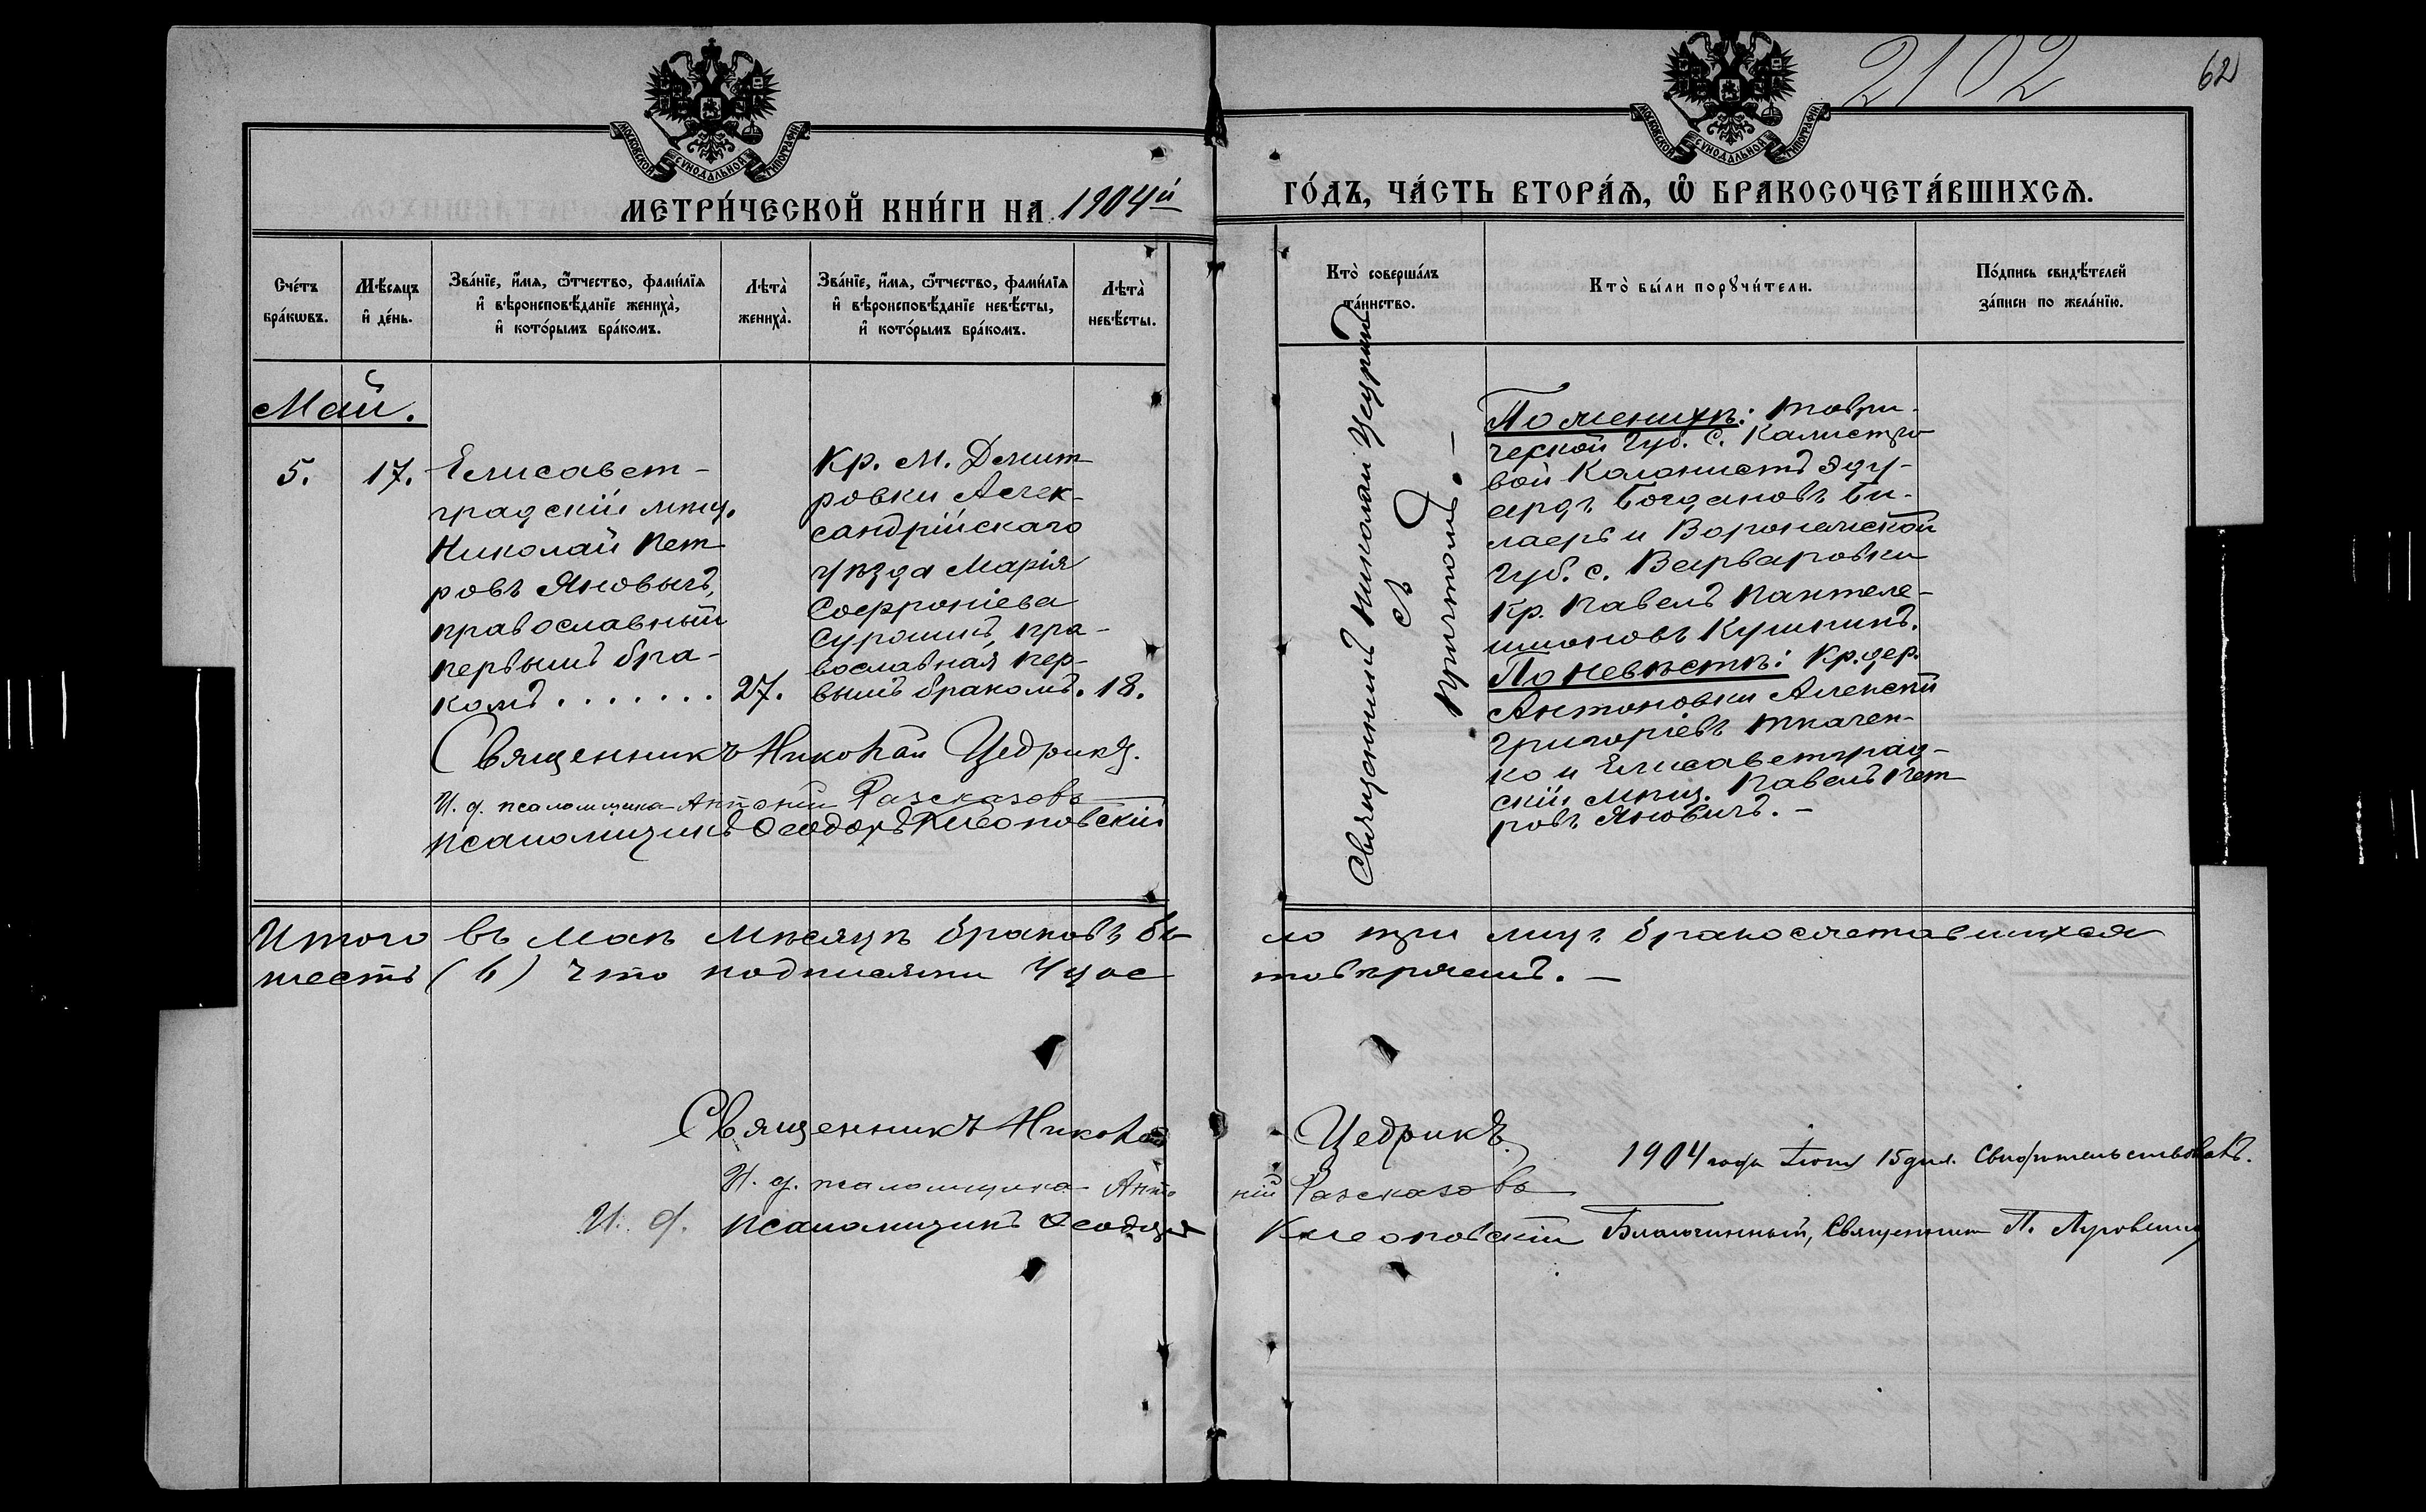 2102
62
МОСКОВСКОЙ СѴНОДАЛЬНОЙ ТИПОГРАФІИ
МОСКОВСКОЙ СѴНОДАЛЬНОЙ ТИПОГРАФІИ
МЕТРИ́ЧЕСКОЙ КНИ́ГИ НА 1904й
ГО́ДЪ, ЧА́СТЬ ВТОРА́Ѧ, Ѡ҆ БРАКОСОЧЕТА́ВШИХСѦ.
Сче́тъ
бра́кѡвъ.
Мѣ́сяцъ
и҆ де́нь.
Зва́нїе, и҆́мѧ, ѻ҆́тчество, фами́лїѧ
и҆ вѣроисповѣ́данїе жениха̀,
и҆ кото́рымъ бра́комъ.
Лѣта̀
жениха̀.
Зва́нїе, и҆́мѧ, ѻ҆́тчество, фами́лїѧ
и҆ вѣроисповѣ́данїе невѣ́сты,
и҆ кото́рымъ бра́комъ.
Лѣта̀
невѣ́сты.
Кто̀ соверша́лъ
та́инство.
Кто̀ бы́ли порꙋчи́тели.
По́дпись свидѣ́телей
за́писи по жела́нїю.
Май.
5.
17.
Елисавет-
градскій мѣщ.
Николай Пет
ровъ Яновычъ,
православный
первымъ бра-
комъ . . . . . . .
27.
Кр. м. Дмит
ровки Алек-
сандрійскаго
уѣзда Марія
Софроніева
Сурошмъ, пра-
вославная пер-
вымъ бракомъ.
18.
Священникъ Николай Цедрикъ
съ
Причтомъ. —
По женихѣ: Таври-
ческой Губ. с.
вой Колонистъ Эду-
ардъ Богдановъ Би-
лаеръ и Воронежской
Губ. с. Варваровки
Кр. Павелъ Пантеле-
имоновъ Кушнинъ.
По невѣстѣ: Кр. дер.
Антоновки Алексѣй
Григоріевъ Ткачен-
ко и Елисаветград-
скій Мѣщ. Павелъ Пет
ровъ Яновичъ. —
Священникъ Николай Цедрикъ.
И. д. псаломщика Антоній Разсказовъ
Псаломщикъ Ѳеодоръ Клеоповскій
Итого въ Маѣ Мѣсяцѣ браковъ бы
ло три лицъ бракосочетавшихся
шесть (6) что подписями Удос
товѣряемъ. —
Священникъ Николай Цедрикъ.
И. д. псаломщика Антоній Разсказовъ
И. д. Псаломщикъ Ѳеодоръ Клеоповскій
1904 года Іюня 15 дня. Свидѣтельствовалъ.
Благочинный, Священникъ П.